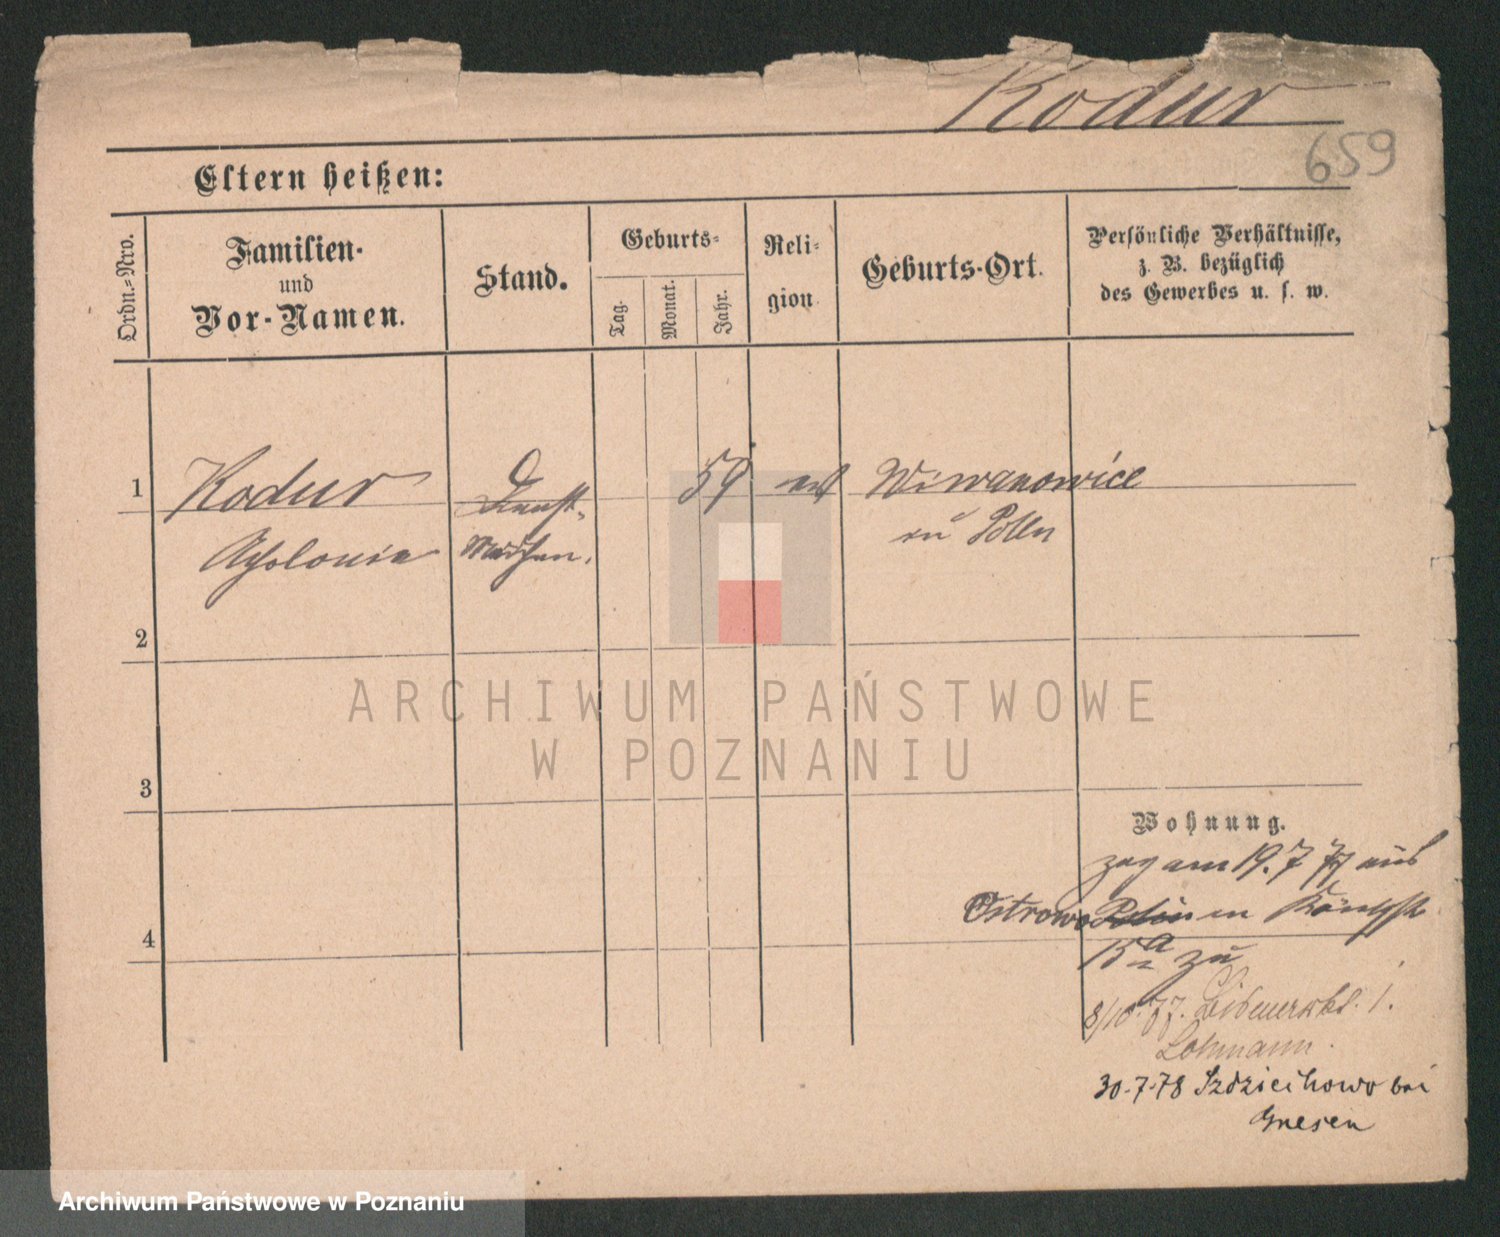 Kodur
659
Eltern heißen:
Ordn.-Nro.
Familien-
und
Vor-Namen.
Stand.
Geburts-
Tag.
Monat.
Jahr.
Reli-
gion
Geburts-Ort.
Persönliche Verhältnisse,
z. B. bezüglich
des Gewerbes u. s. w.
1
Kodur
Dienst-
59
Apolonia
Mädchen.
in Polen
2
ARCHIWUM PAŃSTWOWE
W POZNANIU
3
Wohnung.
zog am 19.7 77 aus
Ostrowo Polen in
4
15a zu
8/10. 77. 1.
Lohmann.
30.7.78 bei
Gnesen
Archiwum Państwowe w Poznaniu